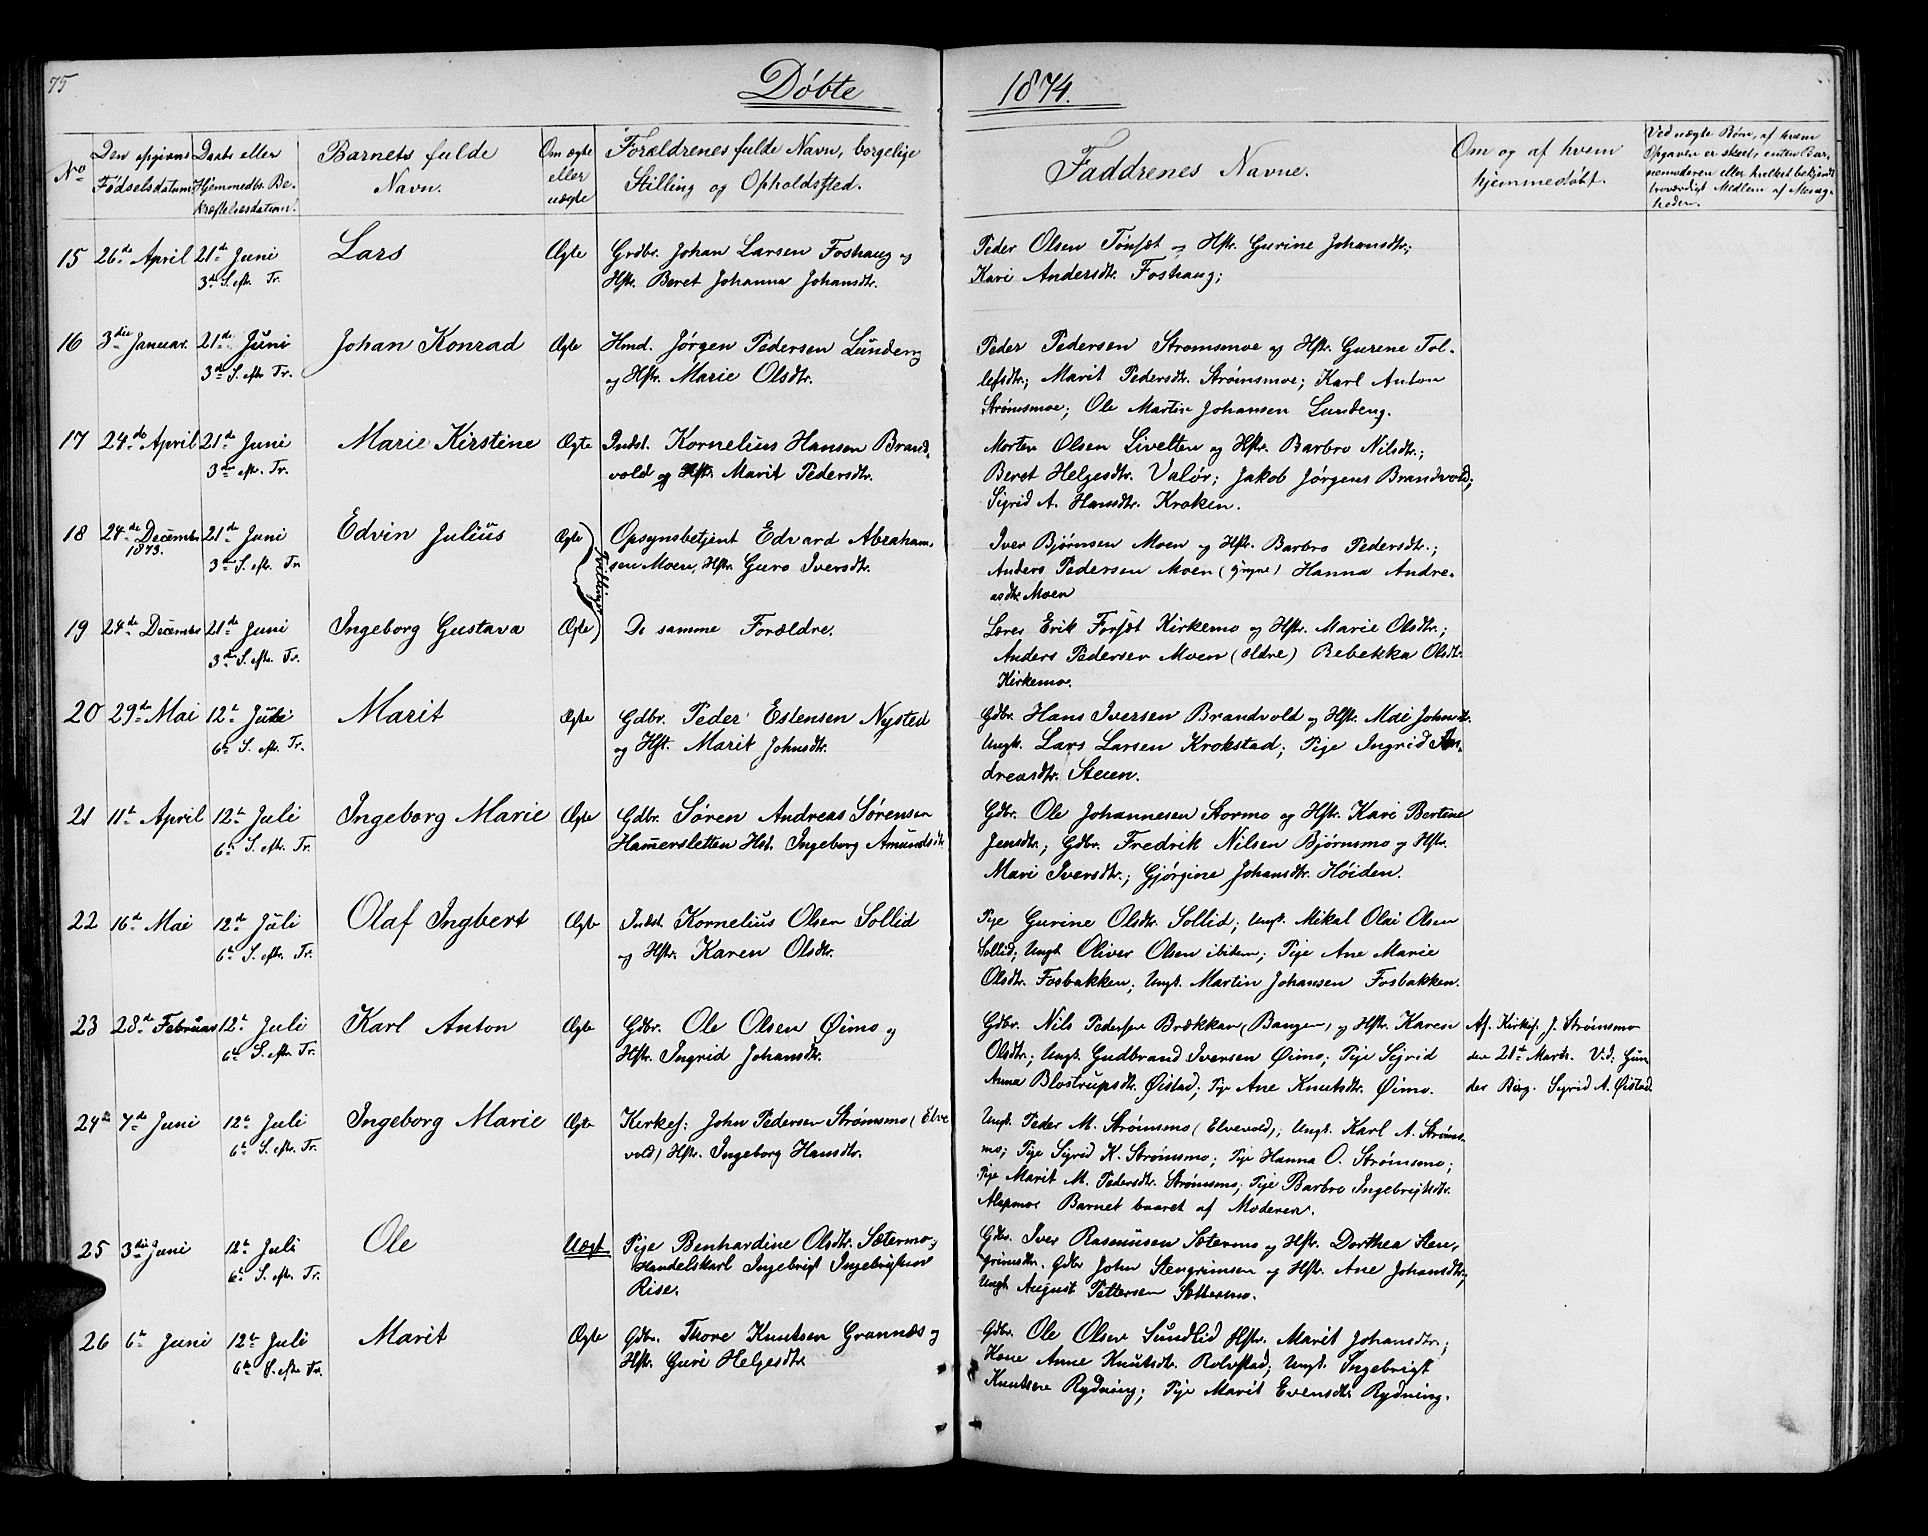 75
Döbte 1874.
No
Den opgivne Fødselsdatum.
Daabs eller Hjemmedb. Bekræftelsesdatum.
Barnets fulde Navn.
Om ægte eller uægte
Forældrenes fulde Navn, borgelige Stilling og Opholdssted.
Faddrenes Navne.
Om og af hvem hjemmedøbt.
Ved uægte Børn, af hvem Opgaven er skeet, enten Barnemoderen eller hvilket bekjendt troværdigt Medlem af Menigheden.
15 26de April 21de Juni Lars Ægte Grdbr. Johan Larsen Foshaug og
3de S. eft. Tr. Hstr. Beret Johanna Johansdtr.
Peder Olsen Tönset og Hstr. Gurine Johansdtr.;
Kari Andersdtr. Foshaug;
16 3die Januar. 21de Juni Johan Konrad Ægte Hmd. Jørgen Pedersen Lundeng
3de S. eft. Tr. og Hstr. Marie Olsdtr.
Peder Pedersen Strømsmoe og Hstr. Gurene Tol-
lefsdtr; Marit Pedersdtr. Strømsmoe; Karl Anton
Strømsmoe; Ole Martin Johansen Lundeng.
17 24de April 21de Juni Marie Kirstine Ægte Indst. Kornelius Hansen Brand
3de eft. Tr. vold og Hstr. Marit Pedersdtr.
Morten Olsen Livelten og Hstr. Barbro Nilsdtr.;
Beret Helgesdtr. Valör; Jakob Jørgens Brandvold;
Sigrid A. Hansdtr. Kroken.
18 24de December 21de Juni Edvin Julius Ægte Opsynsbetjent Edvard Abraham-
1873. 3de S. eft. Tr. Tvillinger sen Moen, Hstr. Guro Iversdtr.
Iver Bjørnsen Moen og Hstr. Barbro Pedersdtr.;
Anders Pedersen Moen (yngre) Hanna Andre-
asdtr. Moen
19 24de December 21de Juni Ingeborg Gustava Ægte De samme Forældre.
3de S. eft. Tr.
Lærer Erik Forsæt Kirkemo og Hstr. Marie Olsdtr.;
Anders Pedersen Moen (ældre) Rebekka Olsdtr.
Kirkemo.
20 29de Mai 12te Juli Marit Ægte Gdbr. Peder Estensen Nysted
6te S. eft. Tr. og Hst. Marit Johnsdtr.
Gdbr. Hans Iversen Brandvold og Hstr. Mari Johnsdtr.
Ungk. Lars Larsen Krokstad; Pige Ingrid An-
dreasdtr. Steien.
21 11te April 12te Juli Ingeborg Marie Ægte Gdbr. Søren Andreas Sørensen
6te S. eft. Tr. Hamersletten Hst. Ingeborg Amundsdtr
Gdbr. Ole Johannesen Stormo og Hstr. Kari Bertine
Jensdtr; Gdbr. Fredrik Nilsen Bjørnsmo og Hstr.
Mari Iversdtr.; Gjørgine Johansdtr. Høiden.
22 16de Mai 12te Juli Olaf Ingbert Ægte Indst. Kornelius Olsen Sollid
6te S. eft. Tr. og Hstr. Karen Olsdtr.
Pige Gurine Olsdtr. Sollid; Ungk. Mikal Olai Olsen
Sollid; Ungk. Oliver Olsen ibidem; Pige Ane Marie
Olsdtr. Fosbakken; Ungk. Martin Johansen Fosbakken.
23 28de Februar 12te Juli Karl Anton Ægte Gdbr. Ole Olsen Øimo og
6te S. eft. Tr. Hstr. Ingrid Johansdtr.
Gdbr. Nils Pedersen Brækkan (Bangen) og Hstr. Karen
Olsdtr.; Ungk. Gudbrand Iversen Øimo; Pige Sigrid
Anna Blostrupsdtr. Øistad; Pige Ane Knutsdtr. Øimo.
Af Kirkes. J. Strømsmo
den 21de Marts. Vid: Gun
der Berg. Sigrid A. Øistad
24de 7de Juni 12te Juli Ingeborg Marie Ægte Kirkes: John Pedersen Strømsmo (Elve
6te S. eft. Tr. vold) Hstr. Ingeborg Hansdtr.
Ungk. Peder M. Strømsmo (Elvevold); Ungk. Karl A. Strøms-
mo; Pige Sigrid K. Strømsmo; Pige Hanna O. Strømsmo;
Pige Marit M. Pedersdtr. Strømsmo; Pige Barbro Ingebrigtsdtr.
Alapmoe Barnet baaret af Moderen.
25 3die Juni 12te Juli Ole Uægt Pige Benhardine Olsdtr. Sætermo og
6te S. eft. Tr. Handelskarl Ingebrigt Ingebrigtsen
Rise.
Gdbr. Iver Rasmusen Sætermo og Hstr. Dorthea Sten-
grimsdtr. Gdbr John Stengrimsen og Hstr. Ane Johansdtr;
Ungk. August Pettersen Sættermo.
26 6te Juni 12te Juli Marit Ægte Gdbr. Thore Knutsen Grannæs og
6te S. eft. Tr. Hstr. Guri Helgesdtr
Gdbr. Ole Olsen Sundlid Hstr. Marit Johansdtr.;
Kone Anne Knutsdtr. Rolvstad; Ungk. Ingebrigt
Knutsen Rydning; Pige Marit Evensdtr Rydning.